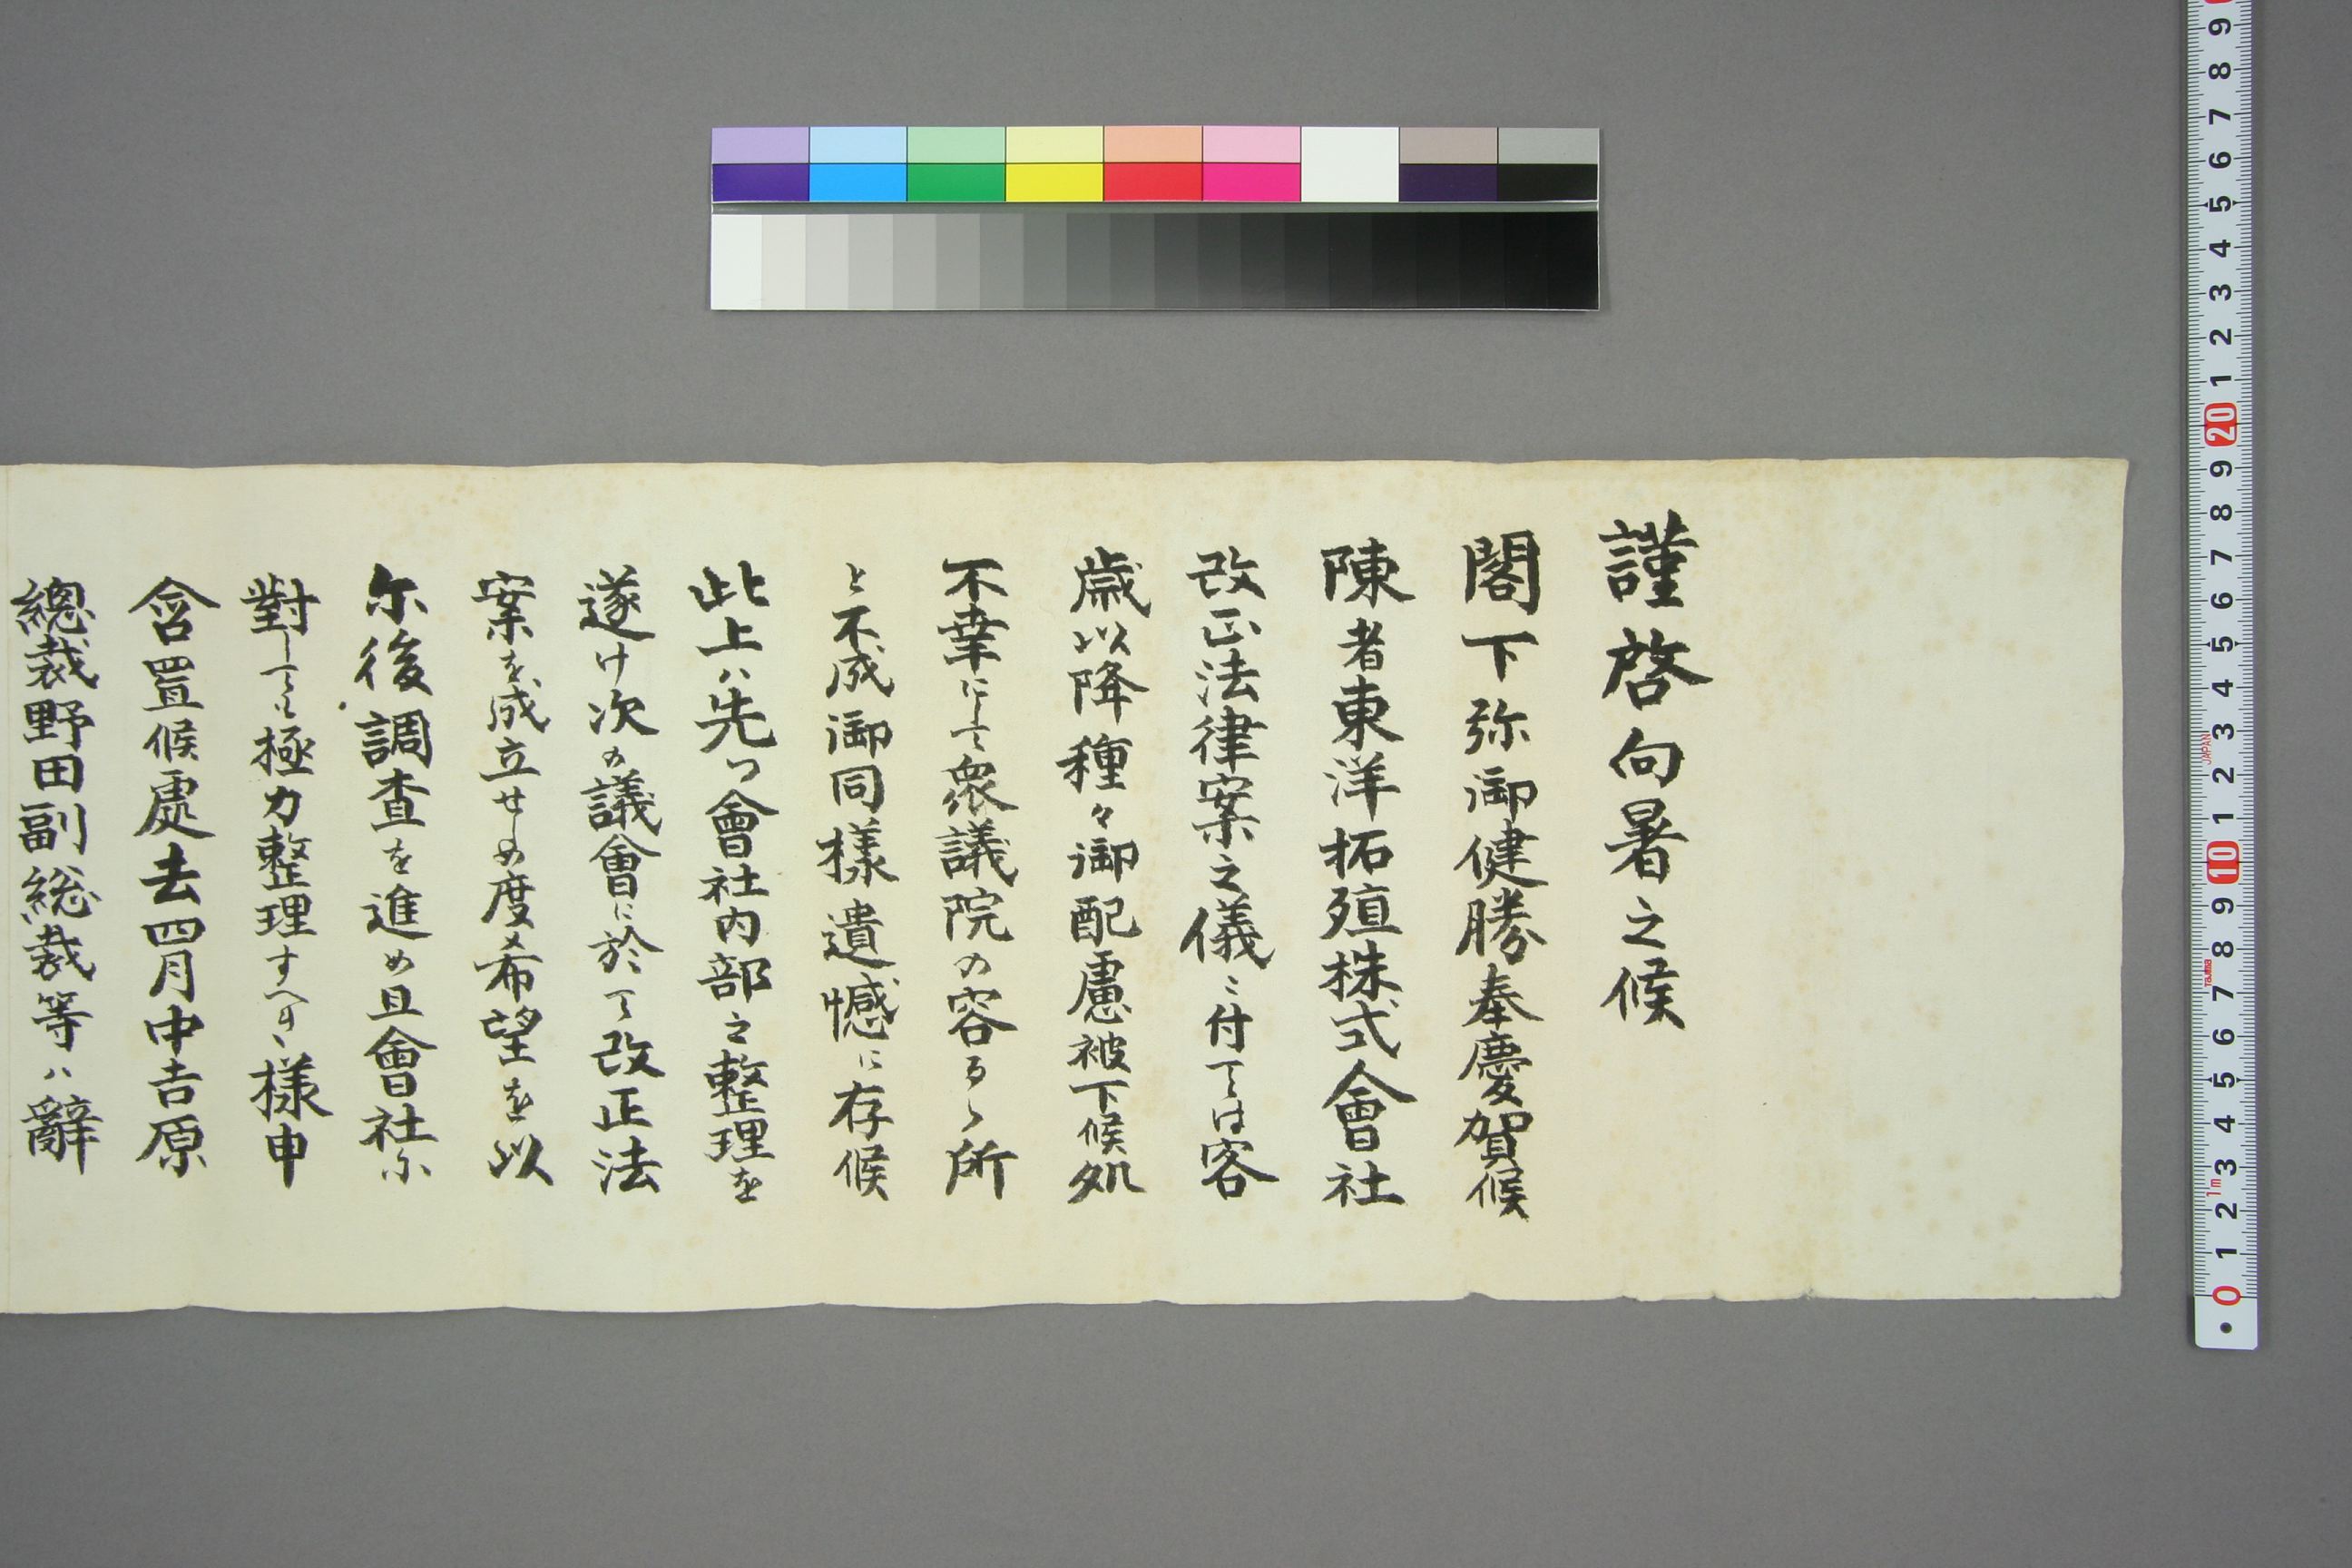 謹啓向暑之候
閣下弥御健勝奉慶賀候
陳者東洋拓殖株式會社
改正法律案之儀ニ付ては客
歳以降種々御配慮被下候処
不幸にして衆議院の容るゝ所
と不成御同様遺憾に存候
此上ハ先つ會社内部之整理を
遂け次の議會に於て改正法
案を成立せしめ度希望を以
尓後調査を進め且會社尓
對しても極力整理すへき様申
含置候處去四月中吉原
總裁野田副総裁等ハ辭
9
8
7
6
5
4
3
2
1
20
9
8
7
6
5
4
3
JAPAN
2
1
10
9
8
7
Tajima
6
5
4
3
1m
2
1
0